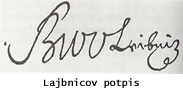 Leibniz
Lajbnicov potpis